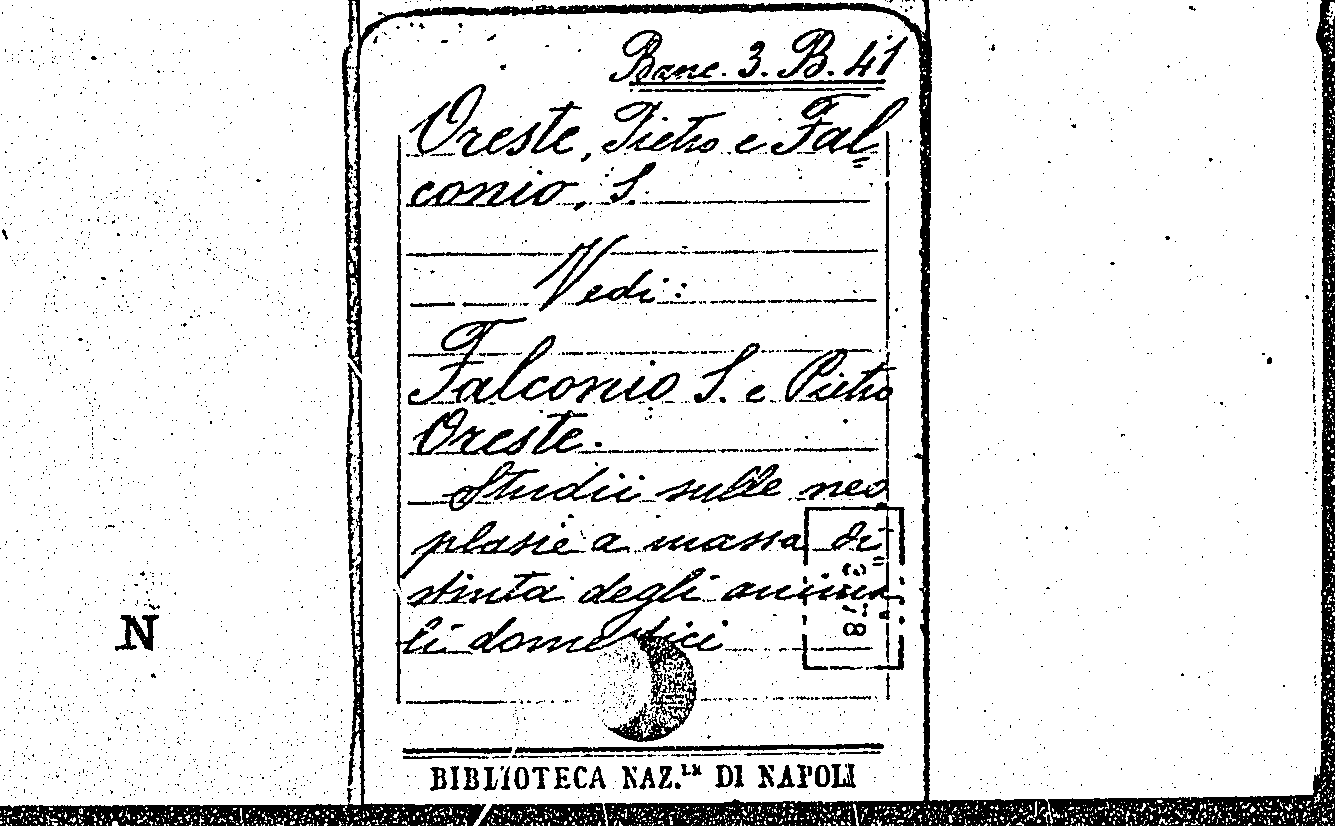 Banc. 3. B. 41
Oreste, Pietro e Fal=
conio, S.
Vedi:
Falconio S. e Pietro
Oreste.
Studii sulle neo
plasie a massa di=
stinta degli anima
li domestici
N
BIBLIOTECA NAZ.LE DI NAPOLI